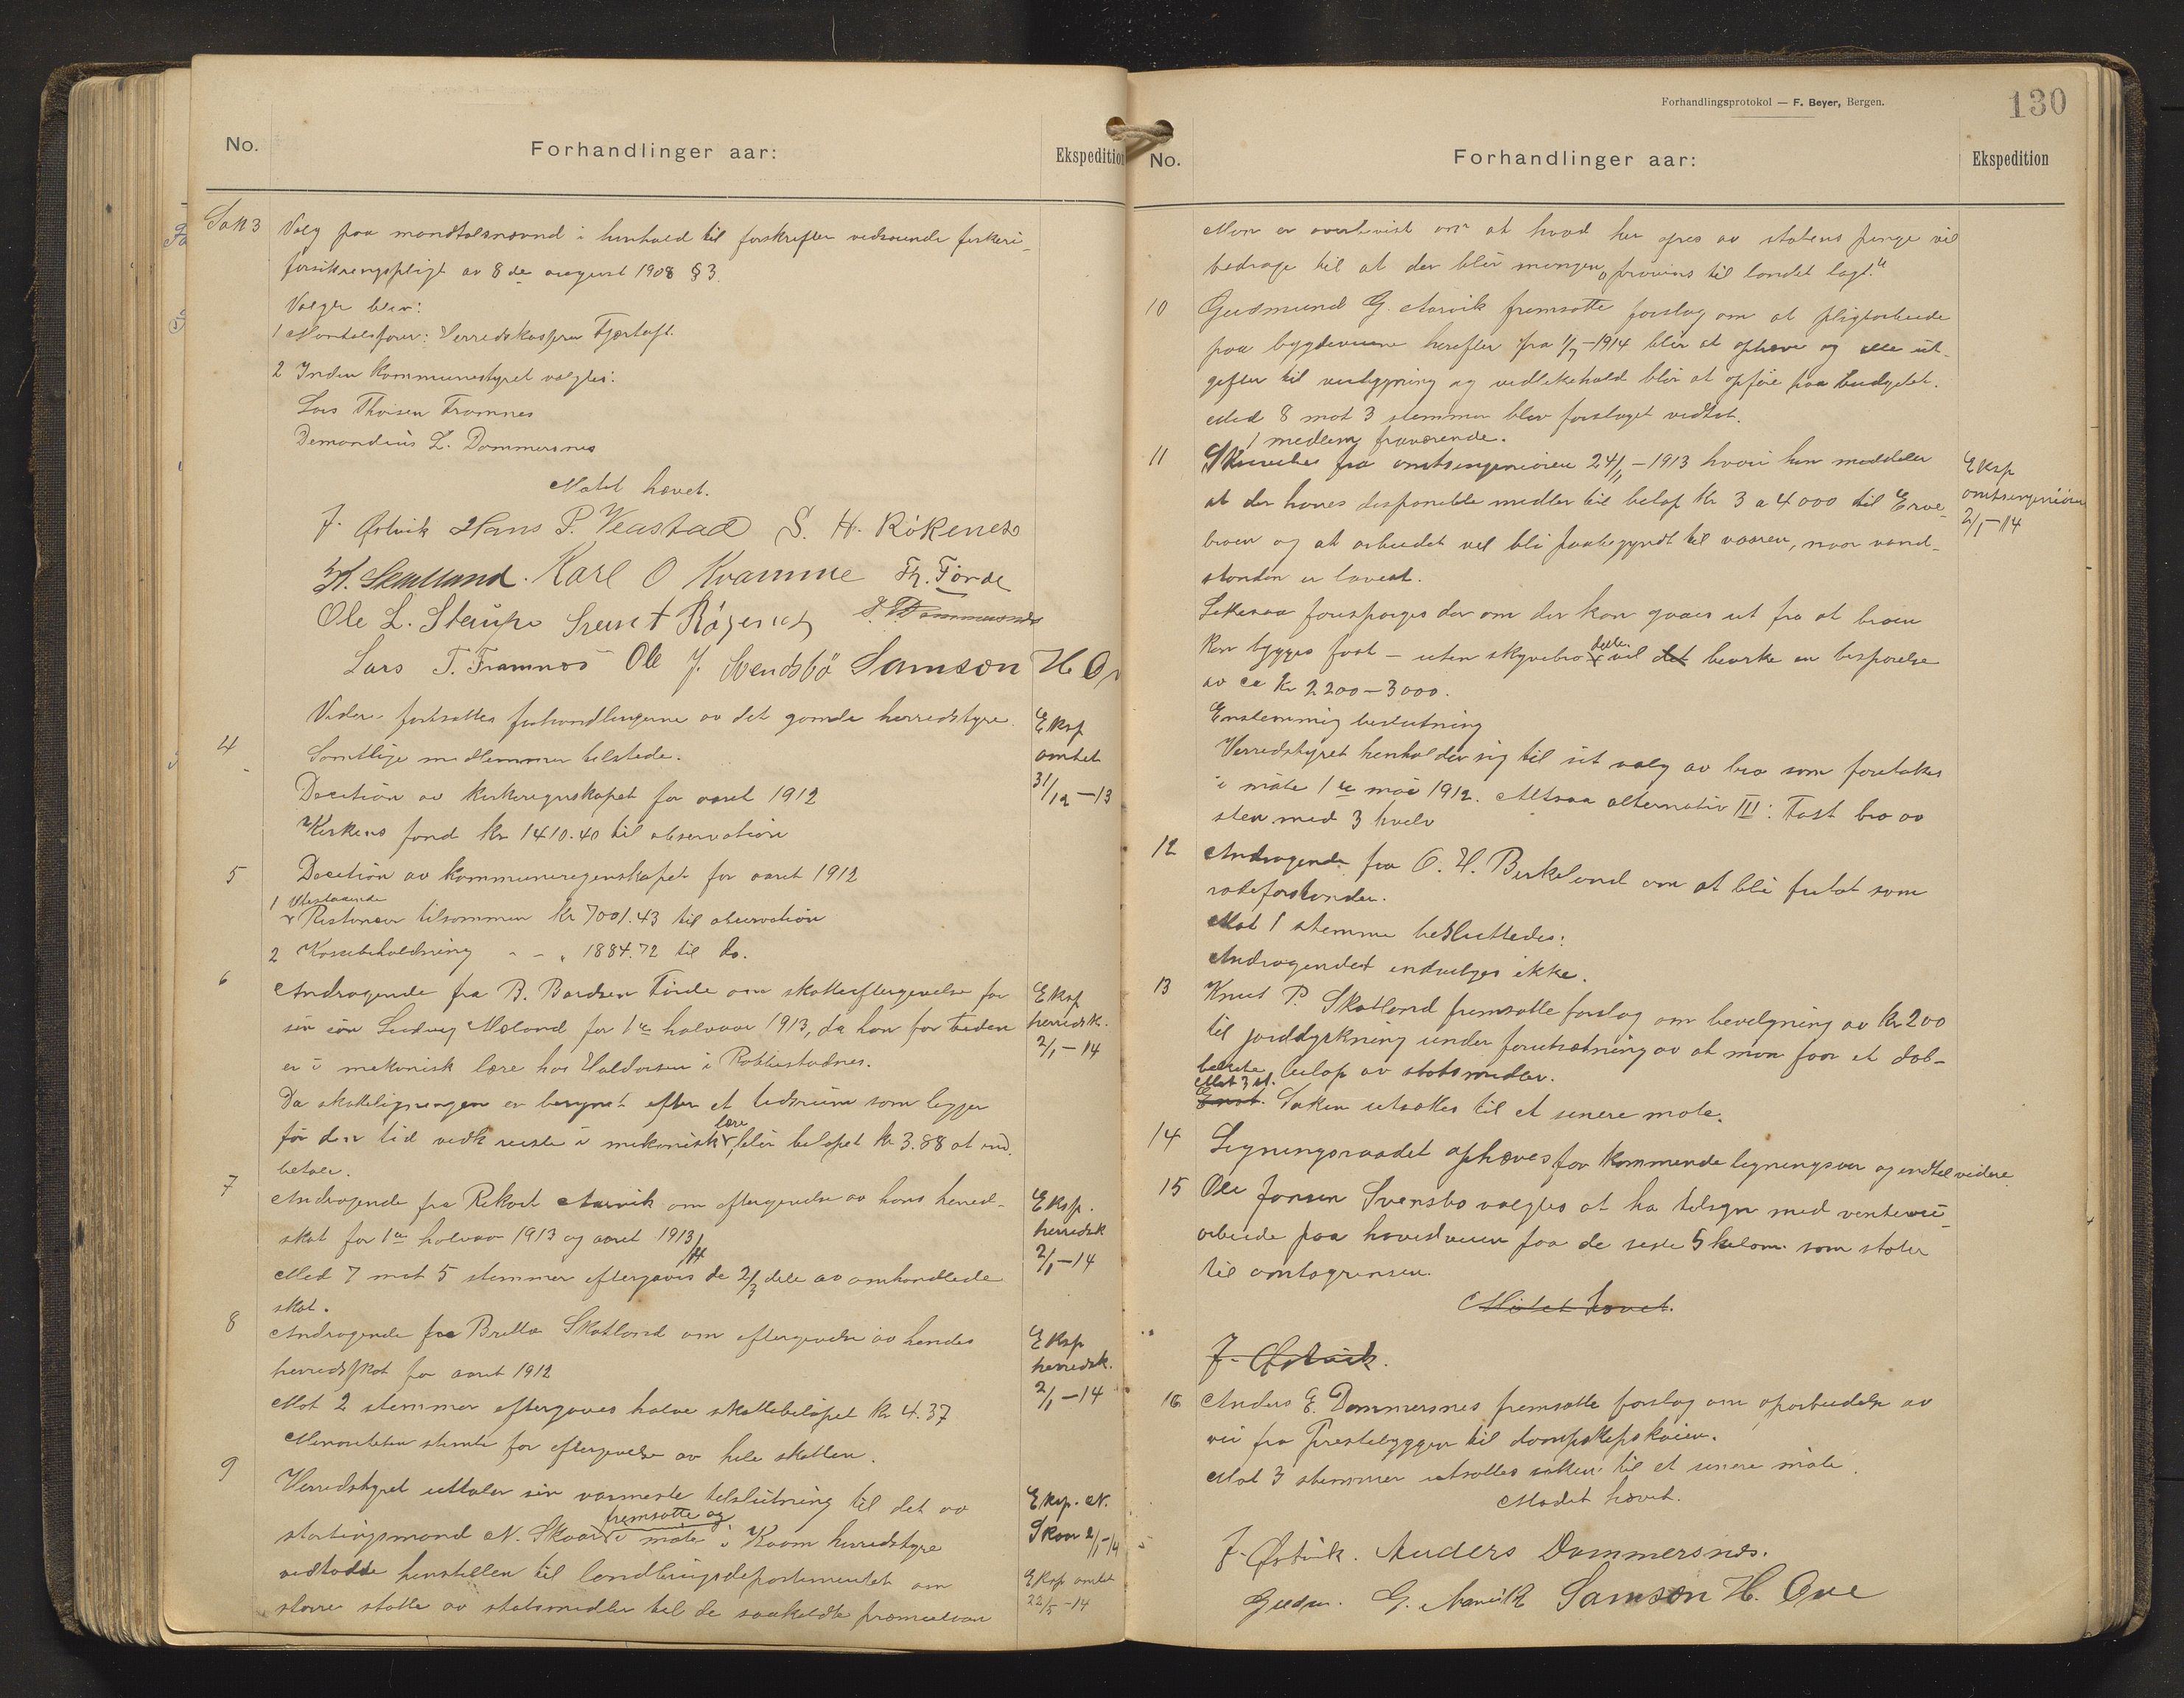 No.
Forhandlinger aar:
Ekspedition
Sak 3
Valg paa mandtalsnævnd i henhold til forskrifter vedrørende fiskeri-
forsikringspligt av 8de august 1908 § 3.
Valgte blev:
1 Mantalsfører: Herredskasserer Fjærtoft.
2 Inden Kommunestyret valgtes:
Lars Thoisen Framnes
Demandius L. Dommersnes
Møtet hævet.
J. Østvik Hans P. Veastad S. H. Rökenes
K. Skatland. Karl O Kvamme Th. Förde
Ole L. Steinpr Sunt Røyenes D. Dommersnes
Lars T. Framnes Ole J. Svendsbö Samson H. Ov
Videre fortsattes forhandlingerne av det gamle herredstyre.
4
Samtlige medlemmer tilstede.
Eksp
amtet
31/12 – 13
Decition av kirkeregnskapet for aaret 1912
Kirkens fond kr 1410.40 til observation
5
Decition av kommuneregnskapet for aaret 1912
1 Utestaaende
Restanser tilsammen kr 7001.43 til observation
2 Kassebeholdning - - „ 1884.72 til do.
6
Andragende fra B. Bardsen Förde om skatteeftergivelse for
sin søn Ludvig Mæland for 1ste halvaar 1913, da han for tiden
er i mekanisk lære hos Haldorsen i Rubbestadnes.
Eksp
herredsk.
2/1 – 14
Da skatteligningen er beregnet efter et tidsrum som ligger
før den tid vedk reiste i mekanisk lære blir beløpet kr 3.88 at ind-
betale.
7
Andragende fra Rikart Aarvik om eftergivelse av hans herred-
skat for 1ste halvaar 1913 og aaret 1913/14
Eksp.
herredsk
2/1 – 14
Med 7 mot 5 stemmer eftergaves de 2/3 dele av omhandlede
skat.
8
Andragende fra Britta Skatland om eftergivelse av hendes
herredsskat for aaret 1912
Eksp
herredsk.
2/1 – 14
Mot 2 stemmer eftergaves halve skattebeløpet kr 4.37
Minoriteten stemte for eftergivelse av hele skatten.
9
Herredstyret uttaler sin varmeste tilslutning til det av
stortingsmand N. Skaar fremsatte og i møte i Kvam herredstyre
vedtatte henstillen til landbruksdepartementet om
større støtte av statsmidler til de saakaldte
Eksp. N.
Skaar 2/1 – 14
Eksp amtet
22/5 – 14
Forhandlingsprotokol — F. Beyer, Bergen.
130
No.
Forhandlinger aar:
Ekspedition
Man er overbevist om at hvad her ofres av statens penge vil
bedrage til at der blir mangen „provins til landet lagt.“
10
Gudmund G. Aarvik fremsatte forslag om at pligtarbeide
paa bygdeveiene herefter fra 1/7 – 1914 blir at ophæve og alle ut-
gifter til veibygning og vedlikehold blir at opföre paa budgettet.
Med 8 mot 3 stemmer blev forslaget vedtat.
1 medlem fraværende.
11
Skrivelse fra amtsingeniøren 24/11 – 1913 hvori han meddeler
at der haves disponible midler til beløp kr 3 a 4000 til Erve-
broen og at arbeidet vil bli paabegyndt til vaaren, naar vand-
standen er lavest.
Eksp
amtsingeniøren
2/1 – 14
Likesaa forespørges der om der kan gaaes ut fra at broen
kan bygges fast – uten skyvebro dette vil det bevirke en besparelse
av ca kr 2200 – 3000.
Enstemmig beslutning
Herredstyret henholder sig til sit valg av bro som foretokes
i møte 1ste mai 1912. Altsaa alternativ III: Fast bro av
sten med 3 hvelv
12
Andragende fra O. H. Birkeland om at bli fritat som
rodeforstander.
Mot 1 stemme besluttedes:
Andragendet indvilges ikke.
13
Knut P. Skatland fremsatte forslag om bevilgning av kr 200
til jorddyrkning under forutsætning av at man faar et dob-
beltete beløp av statsmidler.
Mot 3 st.
Enst. Saken utsattes til et senere møte.
14
Ligningsraadet ophæves for kommende ligningsaar og indtil videre.
15
Ole Jonsen Svensbø valgtes at ha tilsyn med vintervei-
arbeide paa hovedveien paa de siste 5 kilom. som støter
til amtsgrensen.
Møtet hævet.
J. Østvik.
16
Anders E. Dommersnes fremsatte forslag om oparbeidelse av
vei fra Prestebryggen til dampskipskaien.
Mot 3 stemmer utsattes saken til et senere møte.
Mødet hævet.
J. Østvik. Anders Dommersnes.
Gudm. G. Aarvik Samson H. Ove